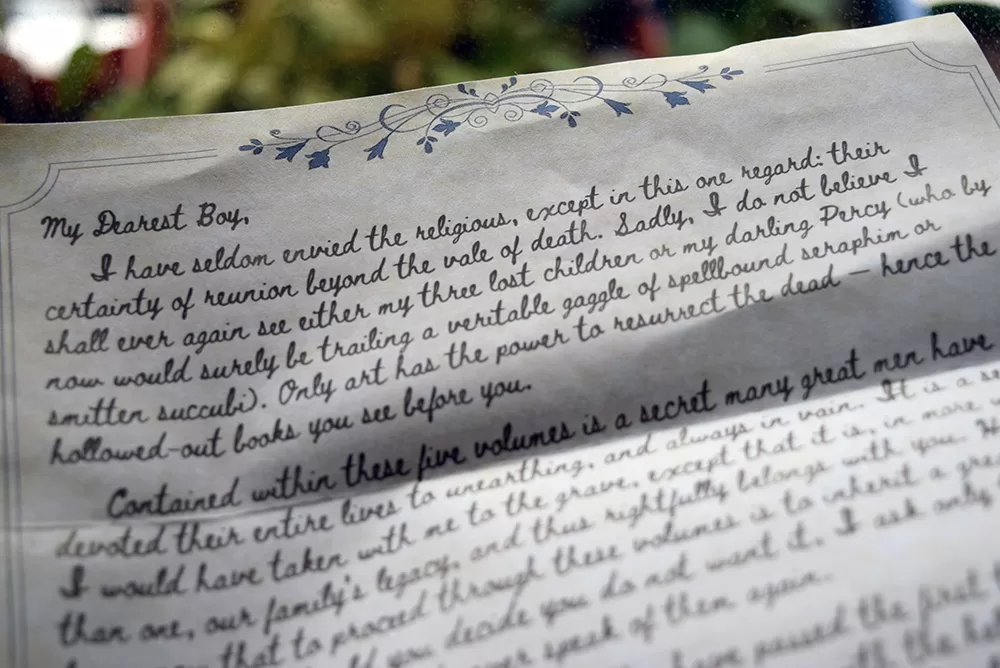 My Dearest Boy,
I have seldom envied the religious, except in this one regard: their
certainty of reunion beyond the vale of death. Sadly, I do not believe I
shall ever again see either my three lost children or my darling Percy (who by
now would surely be trailing a veritable gaggle of spellbound seraphim or
smitten succubi). Only art has the power to resurrect the dead — hence the
hollowed-out books you see before you.
Contained within these five volumes is a secret many great men have
devoted their entire lives to unearthing, and always in vain. It is a
I would have taken with me to the grave, except that it is, in more
than one, our family's legacy, and thus rightfully belongs with you.
that to proceed through these volumes is to inherit a
you decide you do not want it, I ask only
speak of them again.
have passed the first